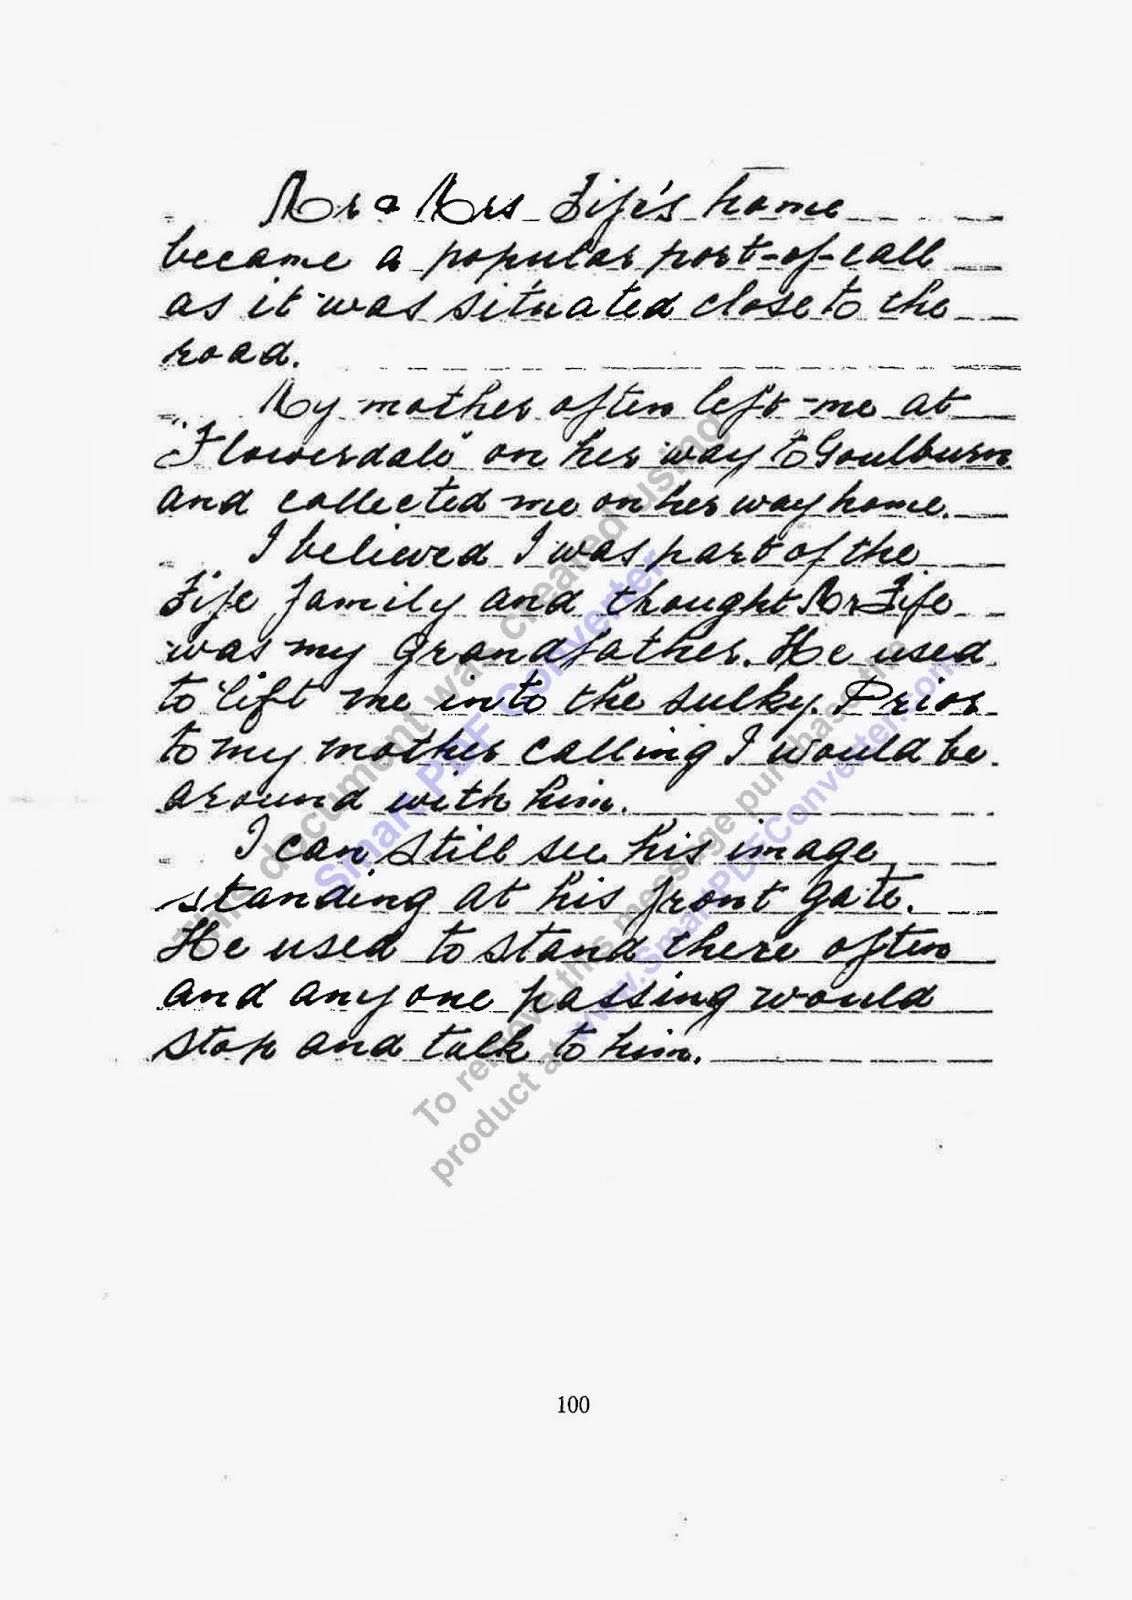 Mr & Mrs Fife's home
became a popular port-of-call
as it was situated close to the
road.
My mother often left me at
"Flowerdale" on her way to Goulburn
and collected me on her way home.
I believed I was part of the
Fife family and thought Mr Fife
was my grandfather. He used
to lift me into the sulky. Prior
to my mother calling I would be
around with him.
I can still see his image
standing at his front gate.
He used to stand there often
and anyone passing would
stop and talk to him.
This document was created using
Smart PDF Converter
To remove this message purchase the
product at www.SmartPDFConverter.com
100